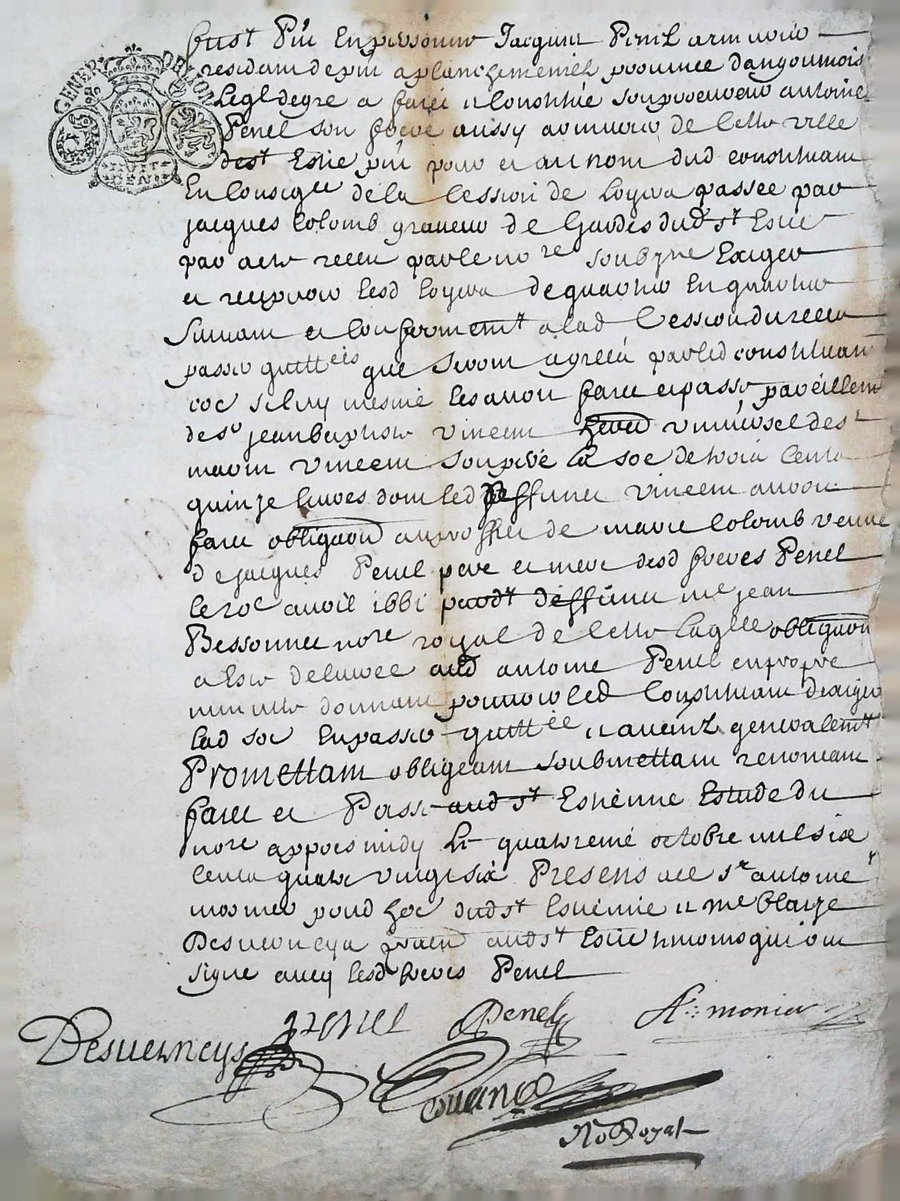 GENER DE LYON
fust p̃nt en personne Jacques Penel armurie
resident de p̃nt a planchemenel province dangoumois
Leql de gre a faict et constitué son procureur antoine
Penel son frere aussy armurier de cette ville
de st Estie p̃nt pour et au nom dud constituant
En conseqce de la Cession de Loyers passée par
jacques Colomb graveur de Gardes dud st Estie
par acte receu par le nore soubzne Exiger
et recepvoir lesd Loyers de quartier En quartier
suivant et conformemt a lad Cession du receu
passer quittces que seront agreés par led constituant
coe si luy mesme les avoit faict et passer pareillemt
de sr jean baptiste vincent herer universel de sr
vincent son pere la soe de trois Cents
quinze livres dont led deffunct vincent avoit
faict obligaon au proffict de marie Colomb veuve
de jacques Penel pere et mere desd freres Penel
le avril 1661 deffunct me jean
Bessonnet nore royal de Cette laqlle obligaon
a Este delivrée aud antoine Penel en propre
minutte donnant pouvoir led Constituant dexiger
lad soe En passer quittce et generalemt
Promettant obligeant soubmettant renoncant
faict et Passe aud st Estienne Estude du
nore appres midy le quatreme octobre mil six
Cents quatre vingt six Presens ace sr antoine
monier dud st Estienne et me blaize
Desverneys aud st Estie tesmoins qui ont
signe avecq lesd freres Penel
J Penel Penel A. monier
Desverneys
No Royal